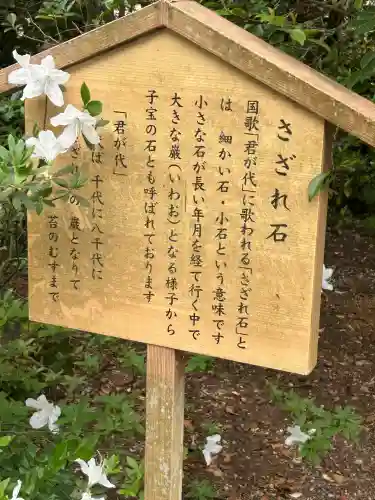 さざれ石
国歌「君が代」に歌われる「さざれ石」と
は 細かい石・小石という意味です
小さな石が長い年月を経て行く中で
大きな巌(いわお)となる様子から
子宝の石とも呼ばれております
「君が代」
は 千代に八千代に
の 巌となりて
苔のむすまで